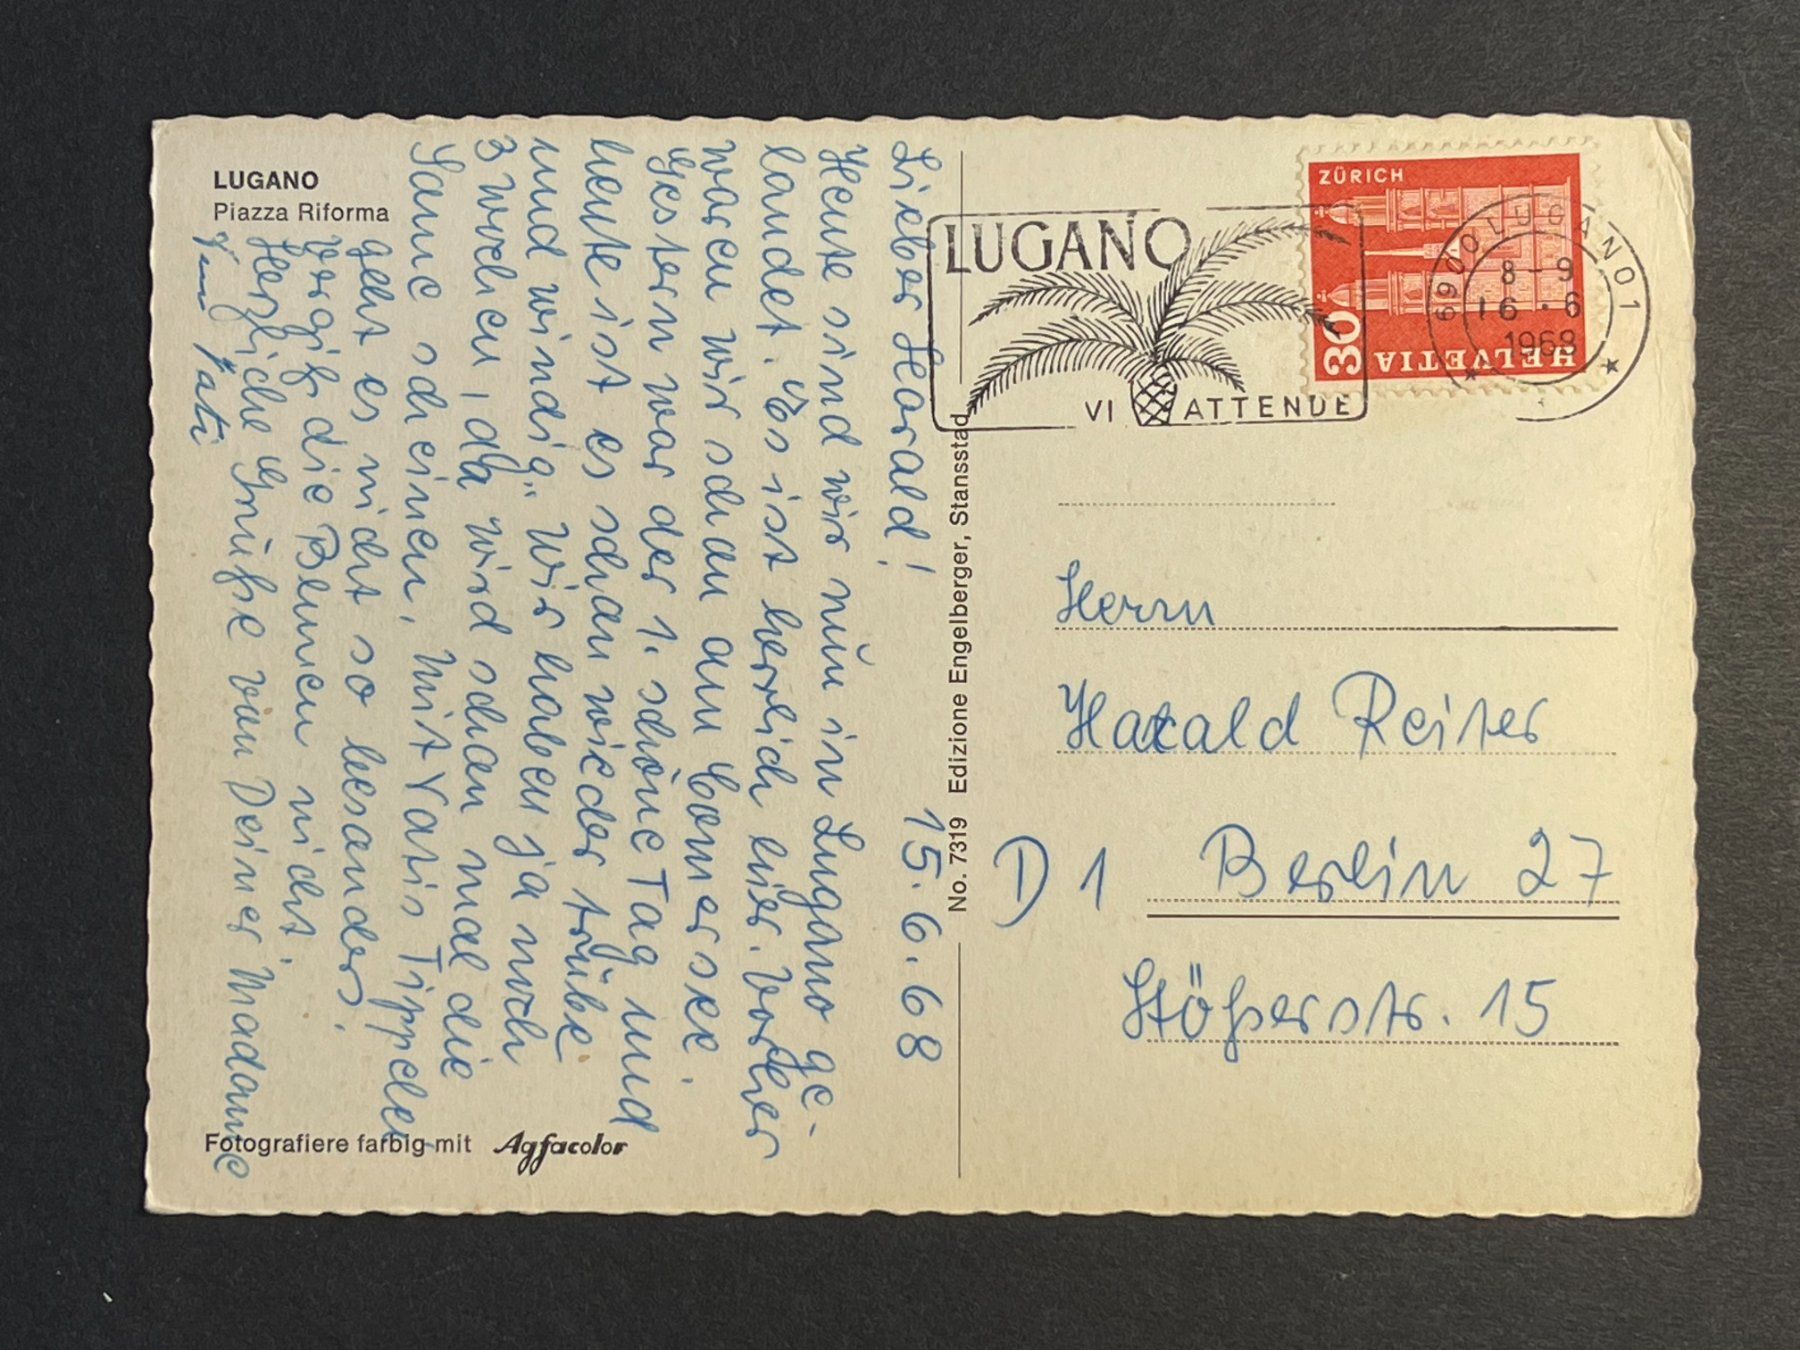 LUGANO
Piazza Riforma
Lieber Harald!
15.6.68
Heute sind wir nun in Lugano ge-
landet. Es ist herrlich hier. Vorher
waren wir schon am Comersee.
Gestern war der 1. schöne Tag und
heute ist es schon wieder trübe
und windig. Wir haben ja noch
3 Wochen, da wird schon mal die
Sonne scheinen. Mit Vatis Tippelei
geht es nicht so besonders.
Vergiß die Blumen nicht.
Herzliche Grüße von Deiner Madame
Vati
Fotografiere farbig mit Agfacolor
No. 7319 Edizione Engelberger, Stansstad
LUGANO
VI ATTENDE
ZÜRICH
30
HELVETIA
6900 LUGANO 1
8-9
16.6
1968
Herrn
Harald Reiter
D 1 Berlin 27
Stößerstr. 15